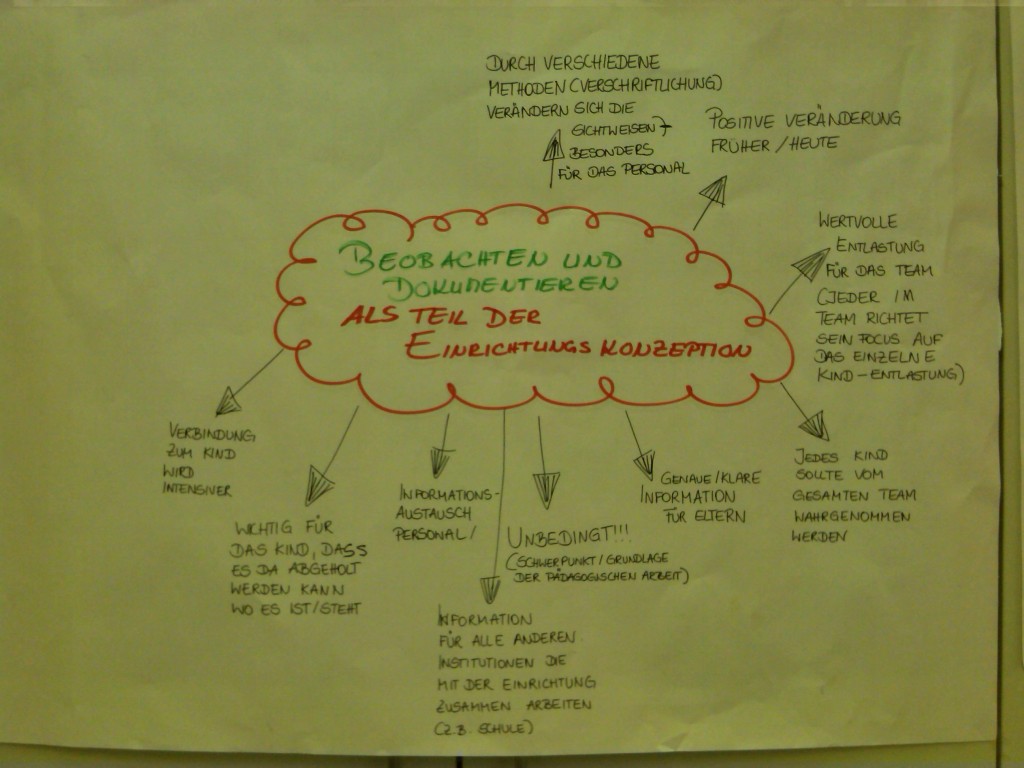 DURCH VERSCHIEDENE
METHODEN (VERSCHRIFTLICHUNG)
VERÄNDERN SICH DIE
SICHTWEISEN →
BESONDERS
FÜR DAS PERSONAL
POSITIVE VERÄNDERUNG
FRÜHER / HEUTE
WERTVOLLE
ENTLASTUNG
FÜR DAS TEAM
(JEDER IM
TEAM RICHTET
SEIN FOCUS AUF
DAS EINZELNE
KIND-ENTLASTUNG)
BEOBACHTEN UND
DOKUMENTIEREN
ALS TEIL DER
EINRICHTUNGSKONZEPTION
VERBINDUNG
ZUM KIND
WIRD
INTENSIVER
WICHTIG FÜR
DAS KIND, DASS
ES DA ABGEHOLT
WERDEN KANN
WO ES IST/STEHT
INFORMATIONS-
AUSTAUSCH
PERSONAL/
INFORMATION
FÜR ALLE ANDEREN
INSTITUTIONEN DIE
MIT DER EINRICHTUNG
ZUSAMMEN ARBEITEN
(Z.B. SCHULE)
UNBEDINGT!!!
(SCHWERPUNKT/GRUNDLAGE
DER PÄDAGOGISCHEN ARBEIT)
GENAUE/KLARE
INFORMATION
FÜR ELTERN
JEDES KIND
SOLLTE VOM
GESAMTEN TEAM
WAHRGENOMMEN
WERDEN